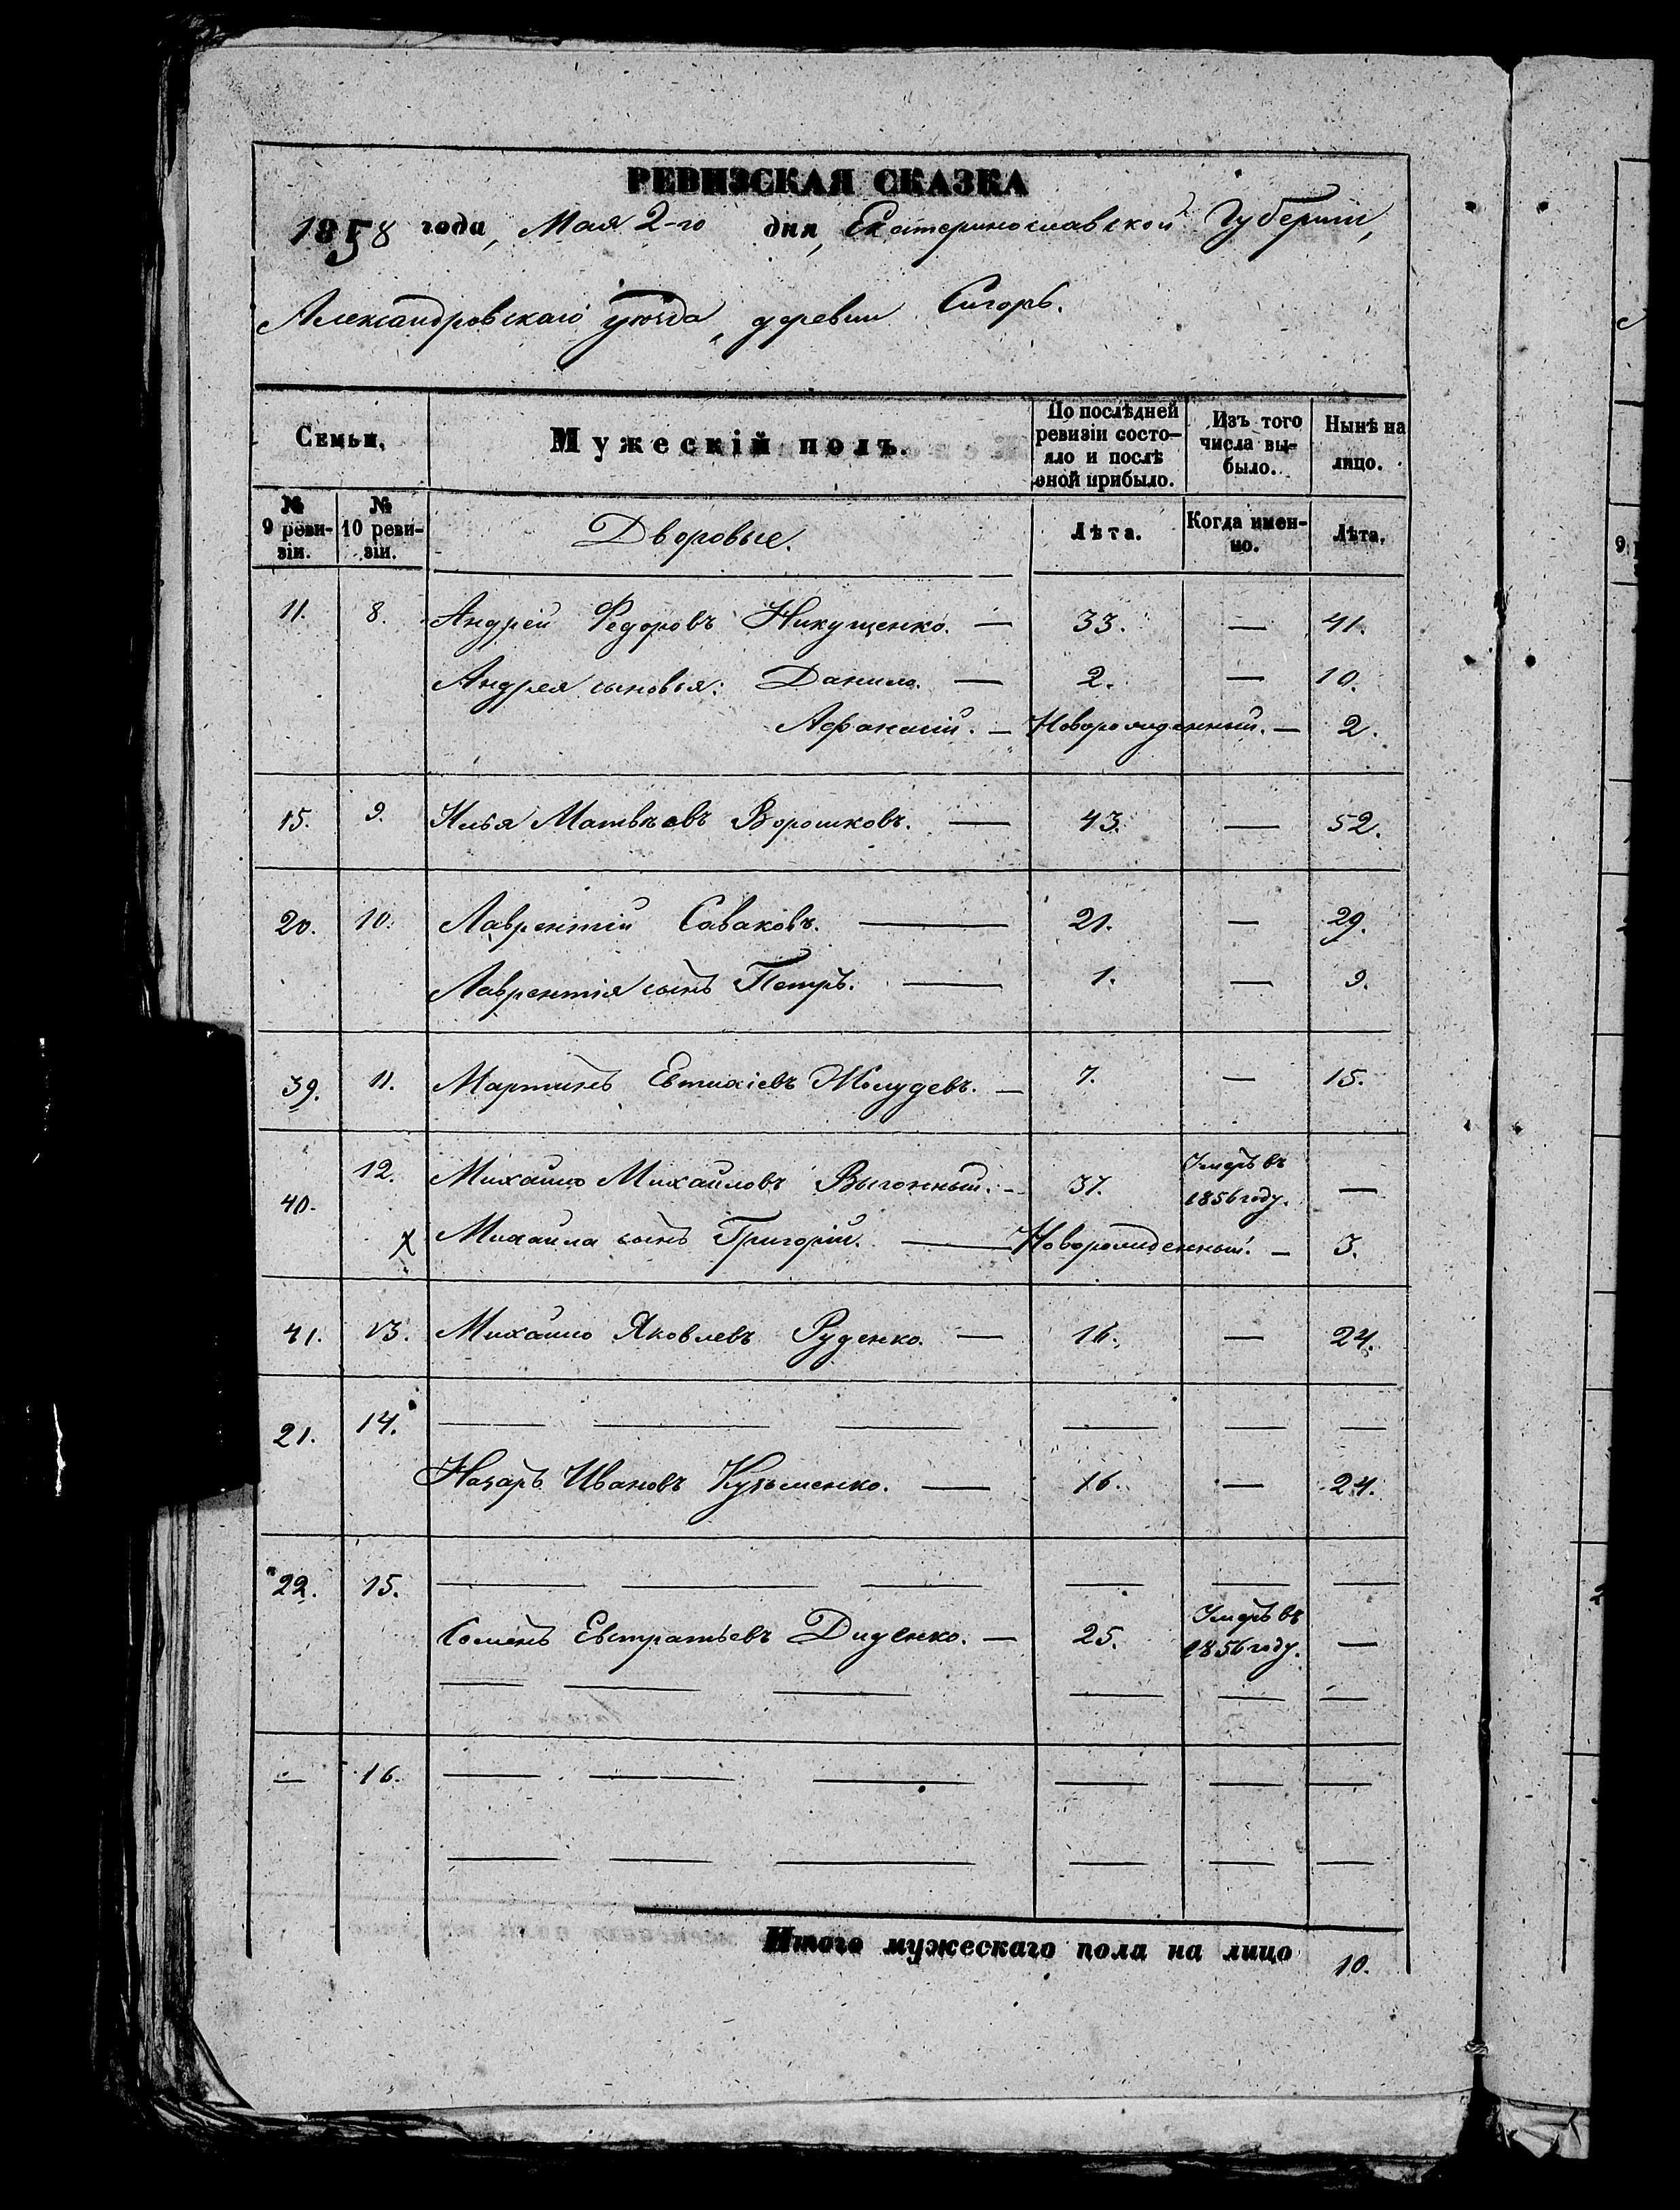 РЕВИЗСКАЯ СКАЗКА
1858 года, Мая 2-го дня, Екатеринославской Губернии,
Александровскаго уѣзда, деревни Сигоръ.
Семьи.
Мужескій полъ.
По послѣдней ревизіи состо-
яло и послѣ
оной прибыло.
Изъ того
числа вы-
было.
Нынѣ на
лицо.
№ 9 реви-
зіи.
№ 10 реви-
зіи.
Дворовые.
Лѣта.
Когда имен-
но.
Лѣта.
11. 8. Андрей Федоровъ Никущенко. — 33. — 41.
Андрея сыновья: Данило. — 2. — 10.
Афанасій. — Новорожденный. — 2.
15. 9. Илья Матвѣевъ Ворошковъ. — 43. — 52.
20. 10. Лаврентій Саваковъ. — 21. — 29.
Лаврентія сынъ Петръ. — 1. — 9.
39. 11. Мартинъ Евтихіевъ Жолудевъ. — 7. — 15.
40. 12. Михайло Михайловъ Выгонный. — 37. Умеръ въ 1856 году. —
х Михаила сынъ Григорій. — Новорожденный. — 3.
41. 13. Михайло Яковлевъ Руденко. — 16. — 24.
21. 14. — — — — — —
Назаръ Ивановъ Кузьменко. — 16. — 24.
22. 15. — — — — — —
Семенъ Евстратьевъ Диденко. — 25. Умеръ въ 1856 году. —
— — — — — —
— 16. — — — — — —
— — — — — —
Итого мужескаго пола на лицо 10.